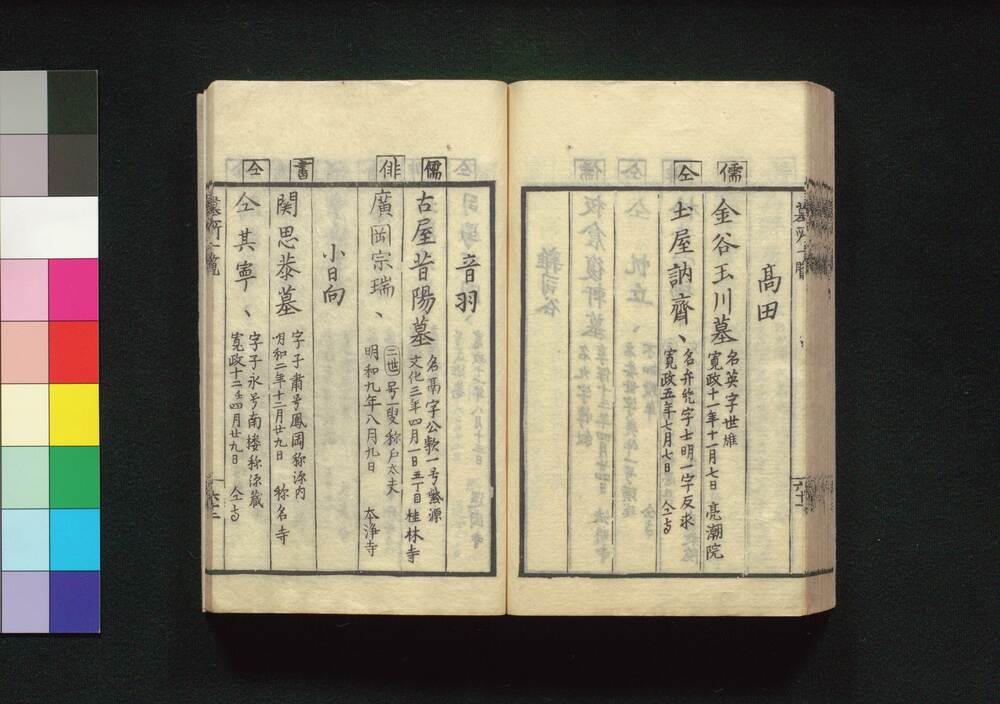 高田
儒
金谷玉川墓
名英字世雄
寛政十一年十一月七日 亮潮院
仝
土屋訥齊、
名弁 字士明一字反求
寛政五年七月七日 仝寺
音羽
儒
古屋昔陽墓
名鬲字公款一号紫源
文化三年四月一日 五丁目 桂林寺
俳
廣岡宗瑞、
三世号一叟称戸太夫
明和九年八月九日 本浄寺
小日向
書
関思恭墓
字子肅号鳳岡称源内
明和二年十二月廿九日 称名寺
仝
仝其寧、
字子永号南楼称源蔵
寛政十二年四月廿九日 仝寺
墓所一覧